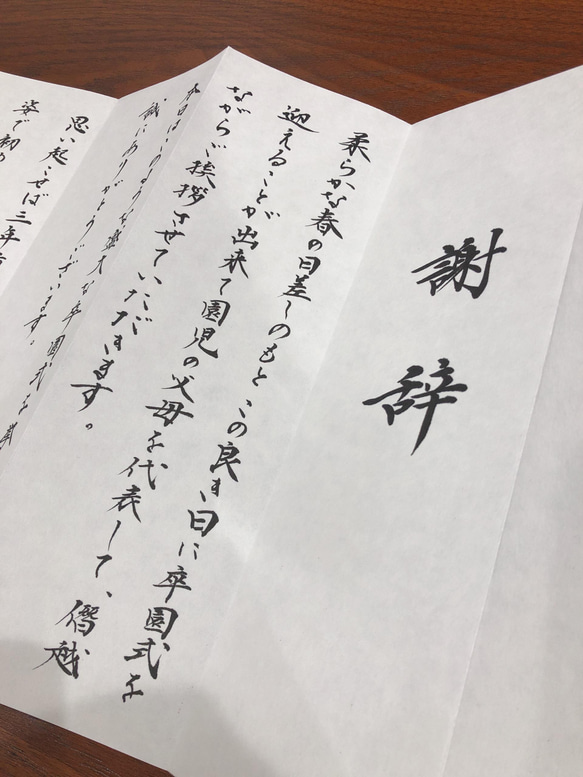 謝辞
柔らかな春の日差しのもと、この良き日に卒園式を
迎えることが出来て園児の父母を代表して、僭越
ながらご挨拶させていただきます。
本日はこのような盛大な卒園式を挙
誠にありがとうございます。
思い起こせば三年前
姿で初め